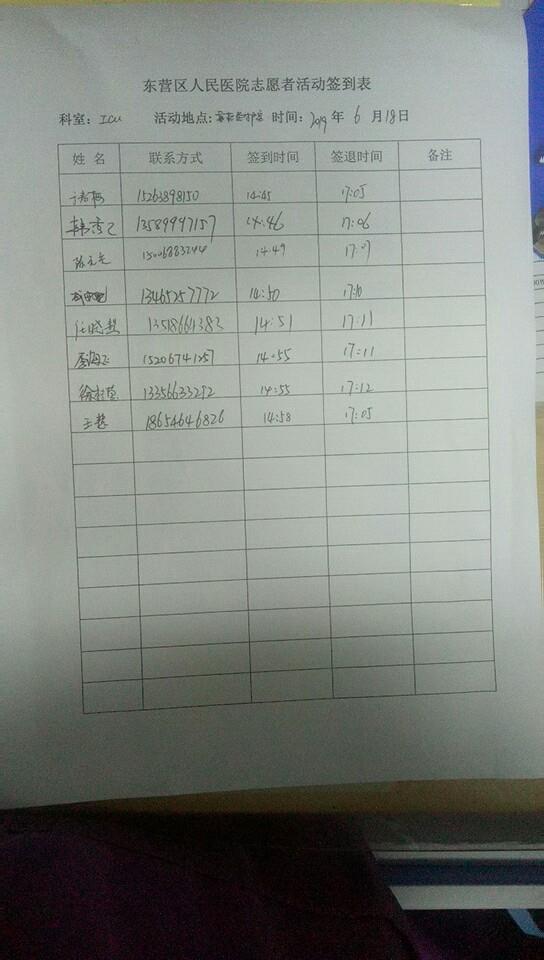 东营区人民医院志愿者活动签到表
科室：ICU 活动地点： 时间：2019年6月18日
姓名 联系方式 签到时间 签退时间 备注
15263898150 14:45 17:05
韩 13589997157 14:46 17:06
15006883244 14:49 17:07
13465257772 14:50 17:10
任晓慧 13518661383 14:51 17:11
15206741257 14:55 17:11
徐 13356633292 14:55 17:12
王慧 18654646826 14:58 17:05